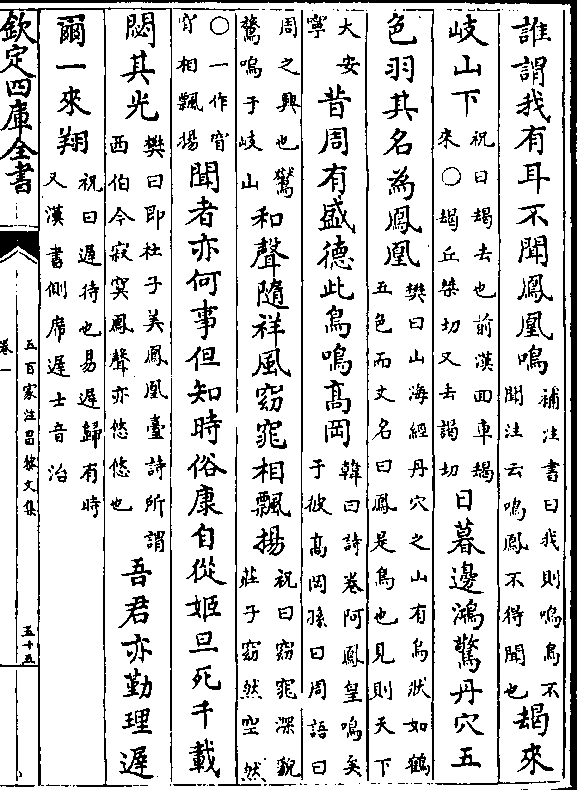 誰謂我有耳不聞鳳凰鳴補注書曰我則鳴鳥不聞注云鳴鳳不得聞也朅來
岐山下祝曰朅去也前漢回車朅來○朅丘桀切又去謁切日暮邊鴻驚丹穴五
色羽其名為鳳凰樊曰山海經丹穴之山有鳥狀如鶴五色而文名曰鳳是鳥也見則天下
大安寧昔周有盛德此鳥鳴髙岡韓曰詩卷阿鳳皇鳴矣于彼髙岡孫曰周語曰
周之興也鸑鷟鳴于岐山和聲隨祥風窈窕相飄揚祝曰窈窕深貌莊子窈然空然
○一作窅窅相飄揚聞者亦何事但知時俗康自從姬旦死千載
閟其光樊曰即杜子美鳳凰臺詩所謂西伯今寂寞鳳聲亦悠悠也吾君亦勤理遲
爾一來翔祝曰遲待也易遲歸有時又漢書側席遲士音治
欽定四庫全書
卷一
五百家注昌黎文集
五十五